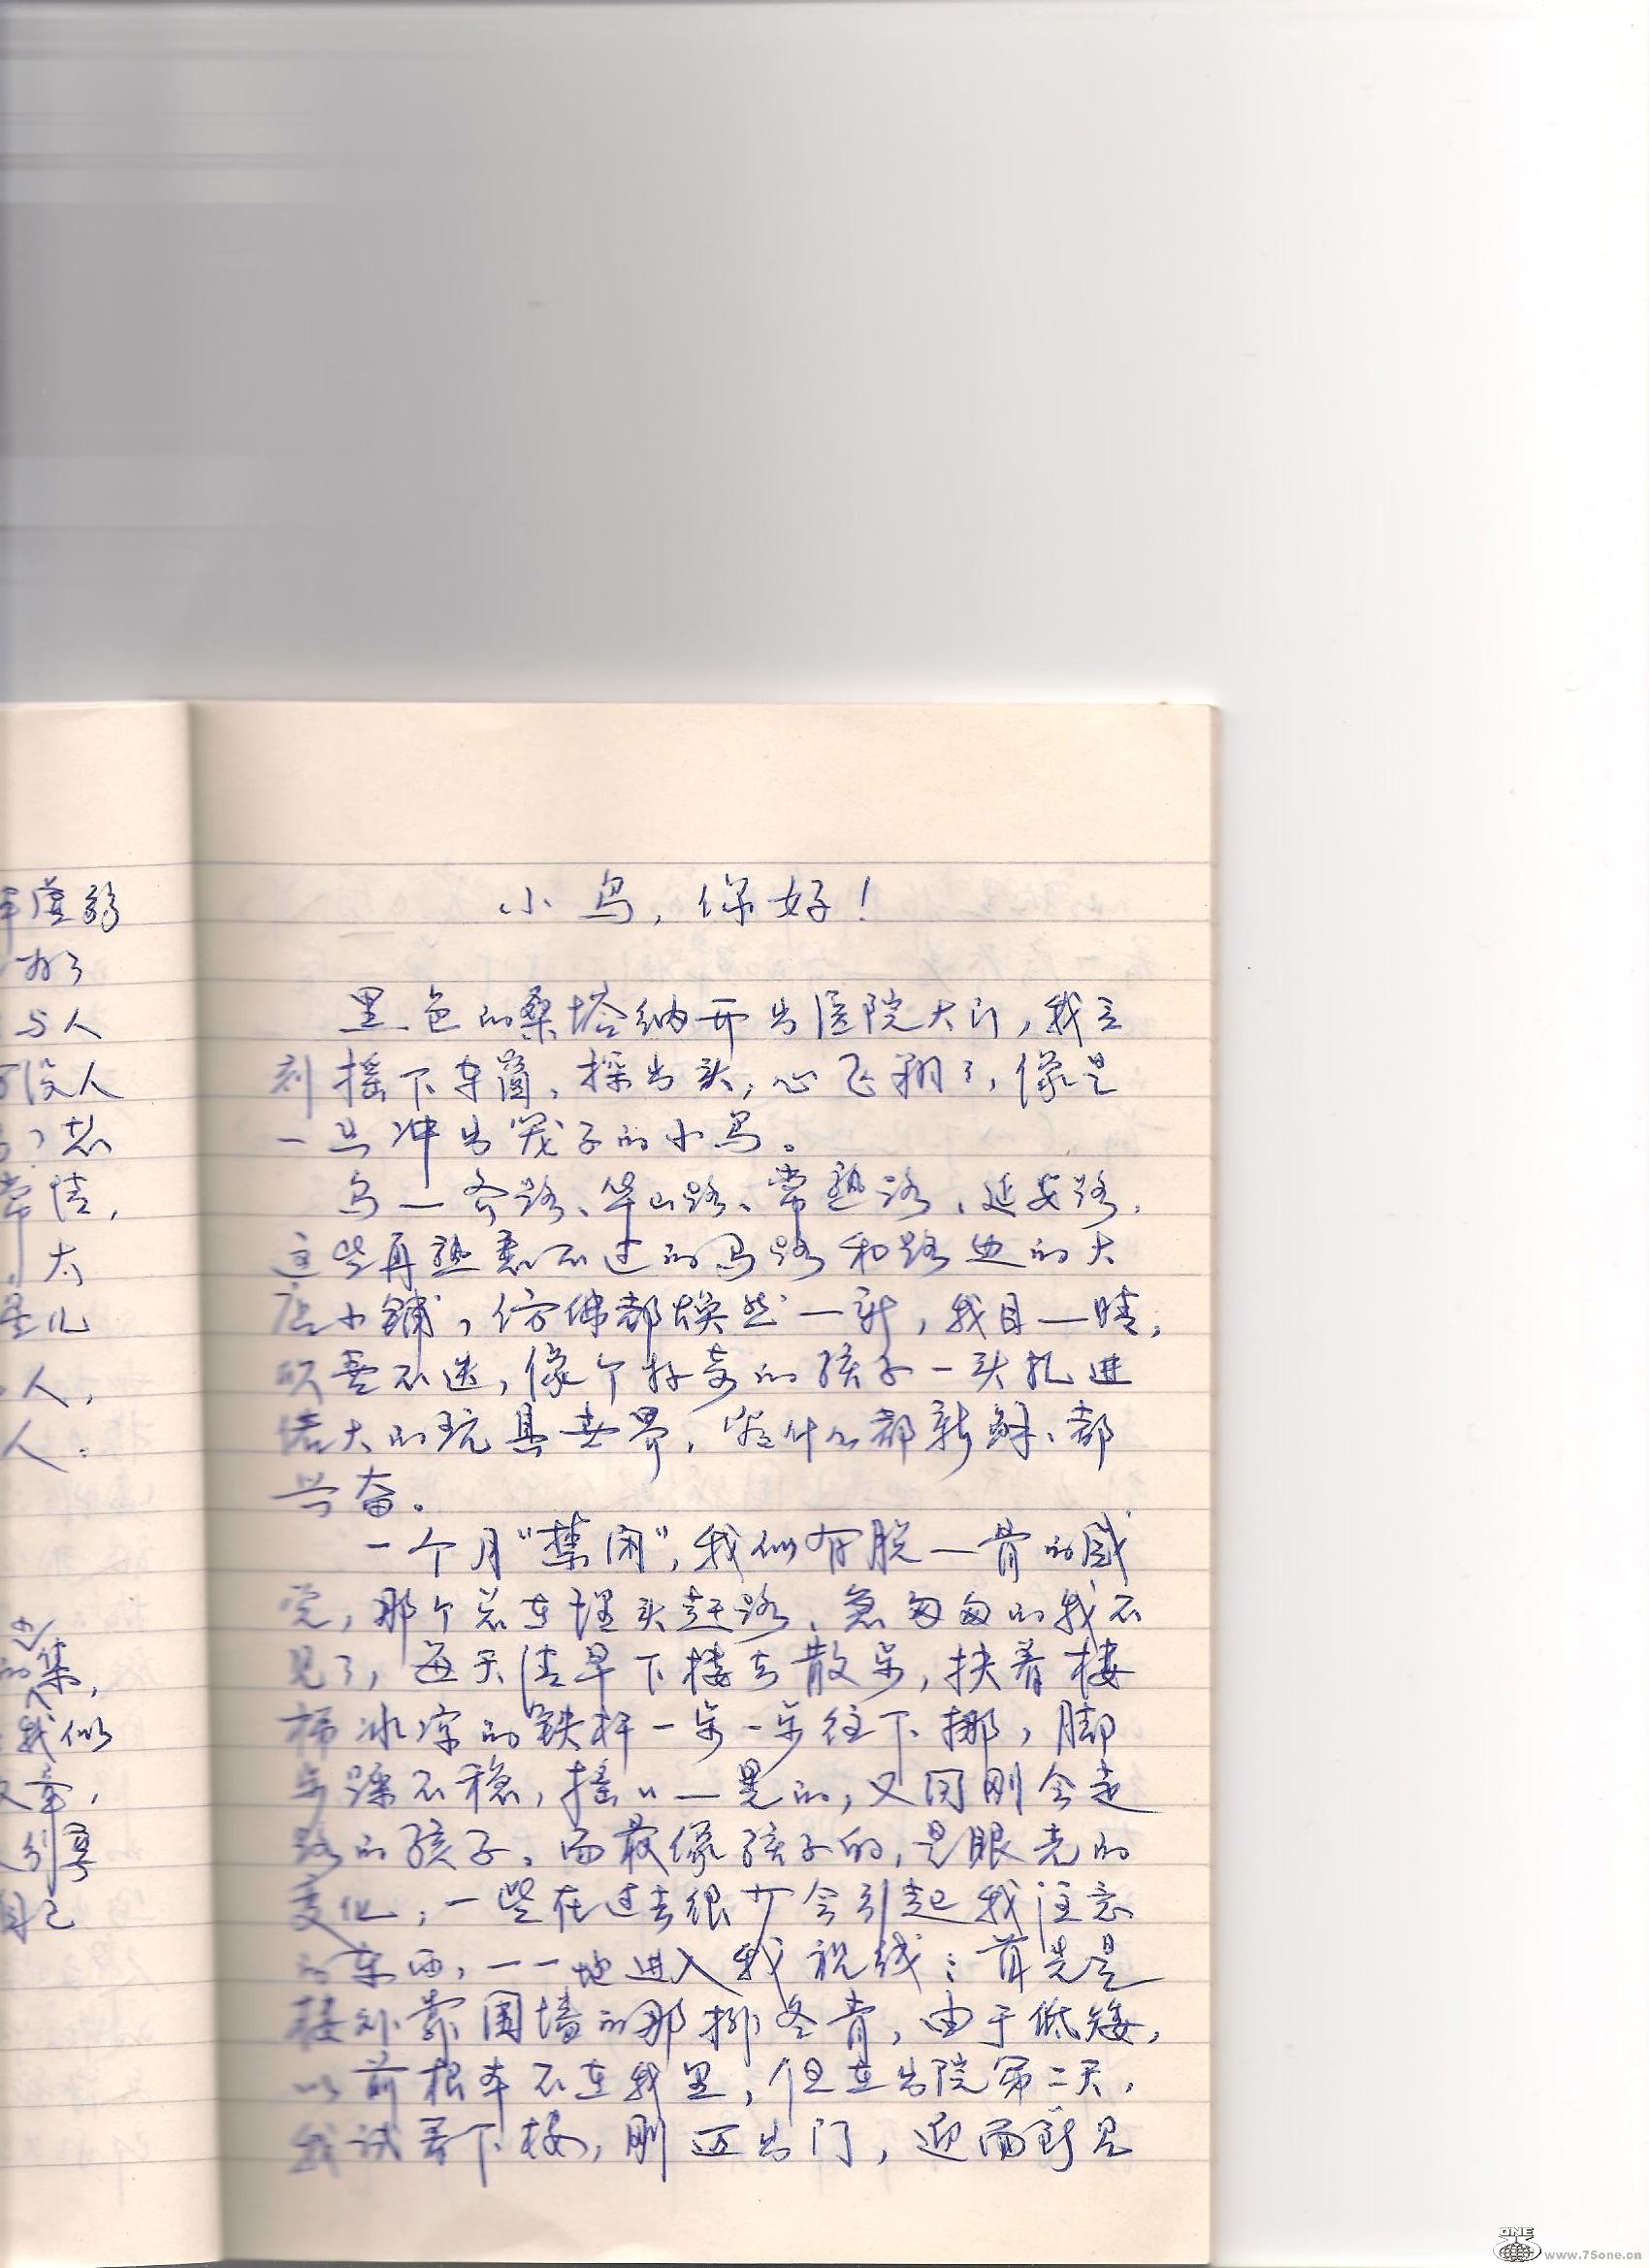 小鸟，你好！
黑色的桑塔纳开出医院大门，我立
刻摇下车窗，探出头，心飞翔了，像是
一只冲出笼子的小鸟。
乌一齐路、华山路、常熟路、延安路，
这些再熟悉不过的马路和路边的大
店小铺，仿佛都焕然一新，我目一睛，
不迭，像个好奇的孩子一头扎进
偌大的玩具世界，觉什么都新鲜、都
兴奋。
一个月“禁闭”，我似有脱一骨的感
觉，那个总在埋头赶路、急匆匆的我不
见了，每天清早下楼去散步，扶着楼
梯冰凉的铁杆一步一步往下挪，脚
步踩不稳，摇〃一晃的，又同刚会走
路的孩子。而最像孩子的，是眼光的
变化，一些在过去很少会引起我注意
的东西，一一地进入我视线：首先是
楼外靠围墙的那排冬青，由于低矮，
以前根本不在我里，但在出院第二天，
我试着下楼，刚迈出门，迎面就见
虚弱
好了
与人
没人
常情，
太
是儿
人，
人：
的集，
我似
文章，
别写
自己
ONE
www.75one.cn